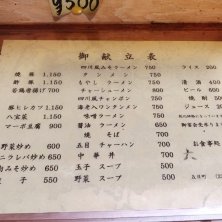 9300
御献立表
四川風みそラーメン 750
タンメン 700
もやしラーメン 700
チャーシューメン 800
四川風チャンポン 750
海老入ワンタンメン 750
味噌ラーメン 700
醤油ラーメン 600
焼そば 700
五目チャーハン 700
中華丼 700
玉子スープ 500
野菜スープ 500
焼豚 1.150
酢豚 1.150
若鶏唐揚げ 700
豚ヒレカツ 1.150
八宝菜 1.150
マーボ豆腐 900
野菜炒め 600
ニラレバ炒め 600
肉みそ炒め 650
子 550
ライス 200
清酒 400
ビール 600
焼酎 500
ジュース
お食事処